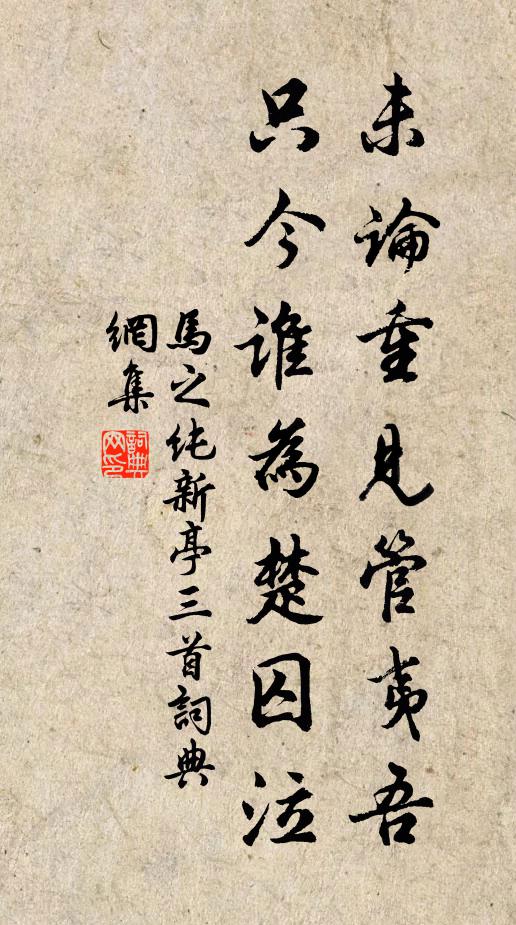 未論重見管夷吾
只今誰為楚囚泣
馬之純新亭三首詞典
網集
詞典
网印